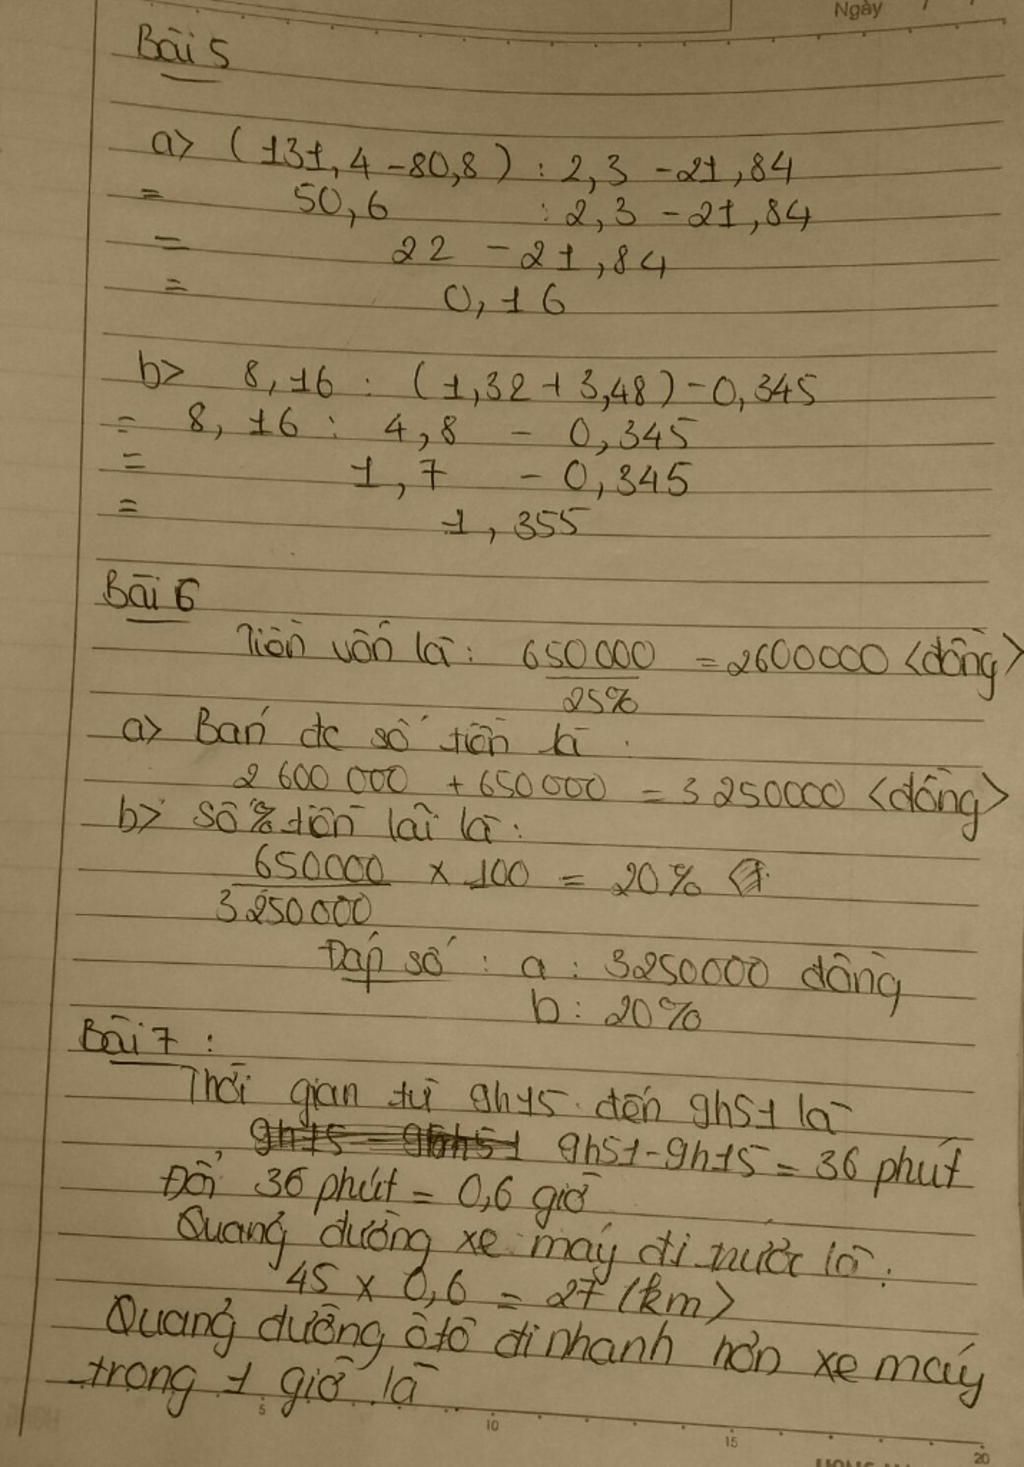 Ngày
Bài 5
a> (131,4 - 80,8) : 2,3 - 21,84
= 50,6 : 2,3 - 21,84
= 22 - 21,84
= 0,16
b> 8,16 : (1,32 + 3,48) - 0,345
= 8,16 : 4,8 - 0,345
= 1,7 - 0,345
= 1,355
Bài 6
Tiền vốn là: 650000 / 25% = 2600000 <đồng>
a> Bán đc số tiền là:
2 600 000 + 650000 = 3250000 <đồng>
b> Số % tiền lãi là:
650000 / 3250000 x 100 = 20%
Đáp số: a: 3250000 đồng
b: 20%
Bài 7:
Thời gian từ 9h15 đến 9h51 là
9h15 - 9h51 9h51 - 9h15 = 36 phút
Đổi 36 phút = 0,6 giờ
Quãng đường xe máy đi trước là:
45 x 0,6 = 27 (km>
Quãng đường ô tô đi nhanh hơn xe máy
trong 1 giờ là
5 10 15 20